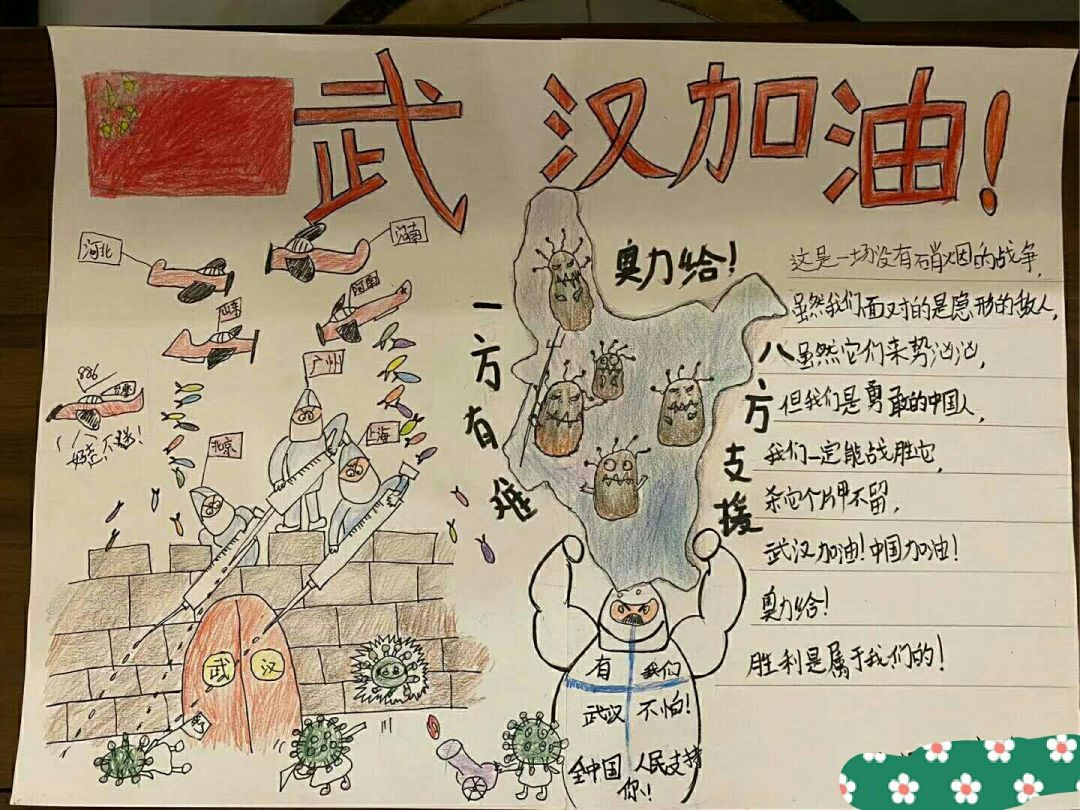 武汉加油!
河北
河南
山东
886
(╯︵╰)
好走,不送!
广州
北京
上海
武 汉
一方有难
八方支援
奥力给!
这是一场没有硝烟的战争,
虽然我们面对的是隐形的敌人,
虽然它们来势汹汹,
但我们是勇敢的中国人,
我们一定能战胜它,
杀它个片甲不留,
武汉加油!中国加油!
奥力给!
胜利是属于我们的!
有 我们
武汉 不怕!
全中国 人民支持
你!!